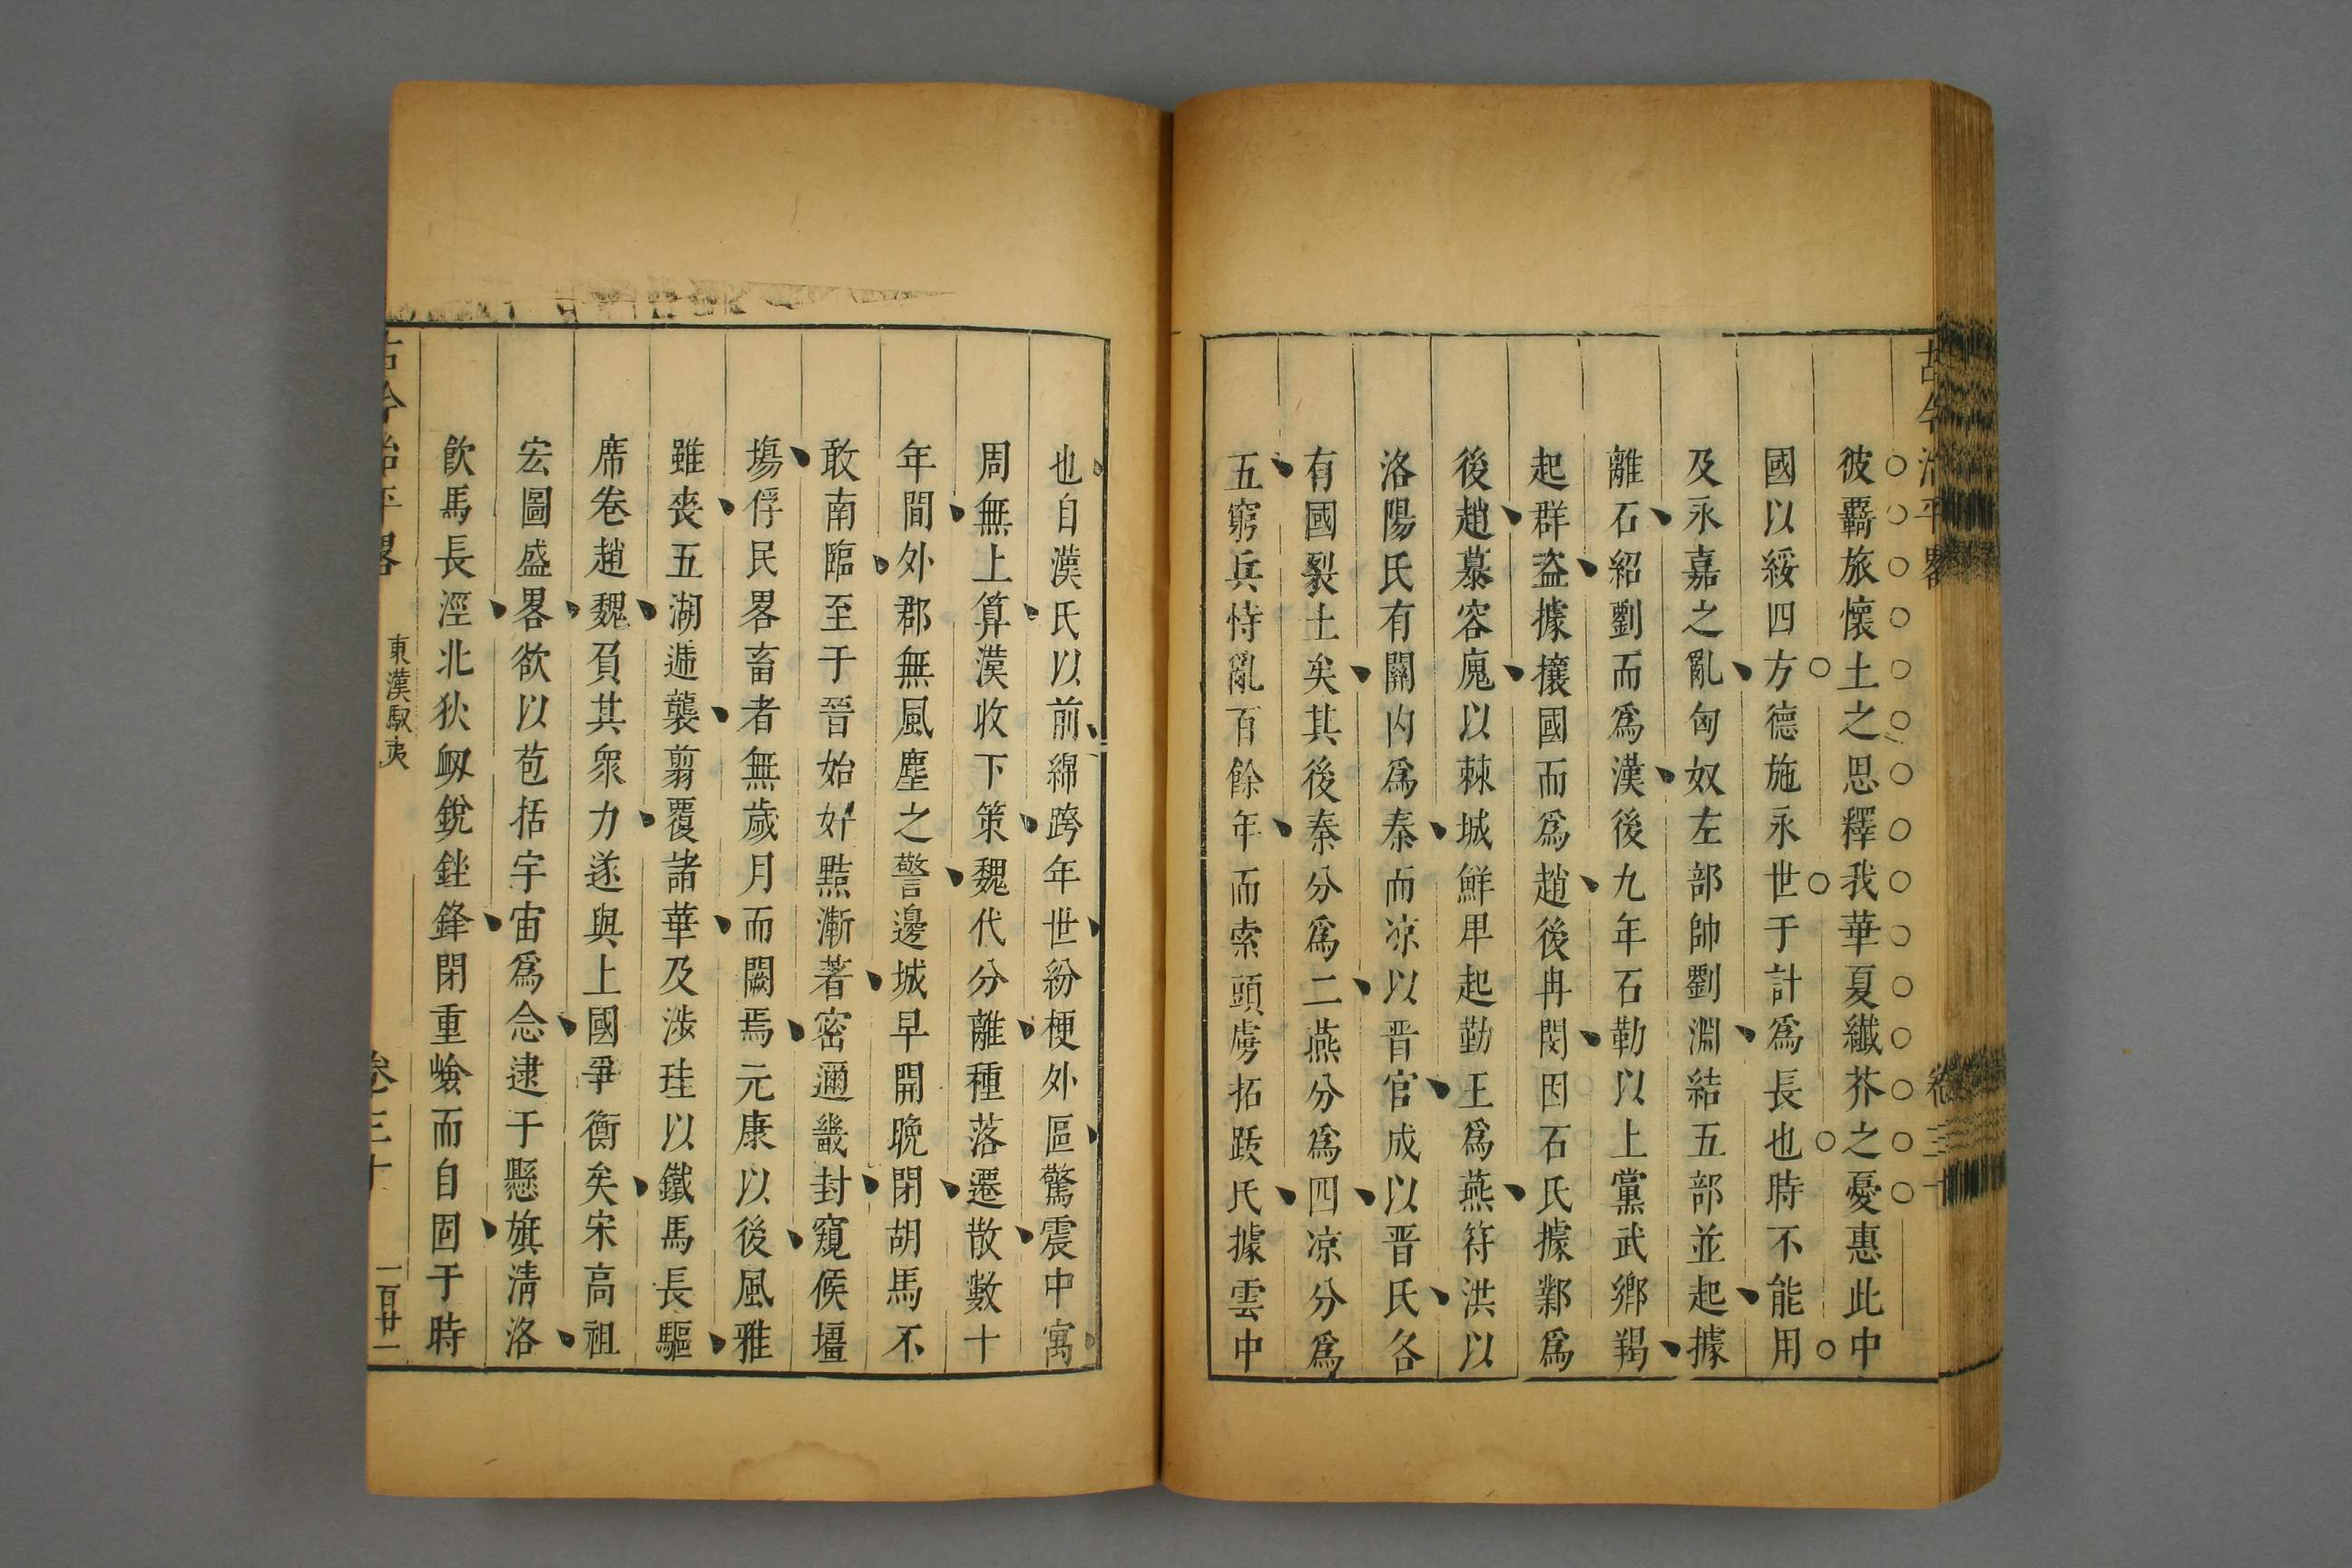 古今治平畧
卷三十
彼覊旅懷土之思釋我華夏纖芥之憂惠此中
國以綏四方德施永世于計爲長也時不能用
及永嘉之亂匈奴左部帥劉淵結五部並起據
離石紹劉而爲漢後九年石勒以上黨武鄉羯
起群盗據攘國而爲趙後冉閔因石氏據鄴爲
後趙慕容廆以棘城鮮卑起勤王爲燕符洪以
洛陽氏有關內爲秦而凉以晋官成以晋氏各
有國裂土矣其後秦分爲二燕分爲四凉分爲
五窮兵恃亂百餘年而索頭虜拓跋氏據雲中
也自漢氏以前綿跨年世紛梗外區驚震中寓
周無上算漢收下策魏代分離種落遷散數十
年間外郡無風塵之警邊城早開晚閉胡馬不
敢南臨至于晉始奸黠漸著密邇畿封窺候壃
場俘民畧畜者無歲月而闕焉元康以後風雅
雖喪五湖遞襲翦覆諸華及涉珪以鐵馬長驅
席卷趙魏負其衆力遂與上國爭衡矣宋高祖
宏圖盛畧欲以苞括宇宙爲念逮于懸旗清洛
飮馬長涇北狄衂銳銼鋒閉重嶮而自固于時
古今治平畧
東漢馭夷
卷三十
一百廿一